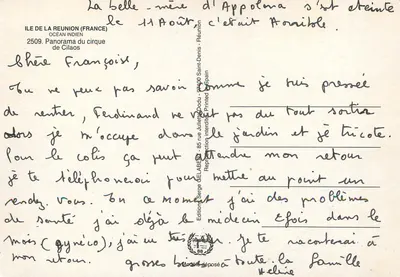 La belle-mère d'Appolona s'est éteinte
le 11 Août, c'était horrible.
ILE DE LA REUNION (FRANCE)
OCEAN INDIEN
2509. Panorama du cirque
de Cilaos
Chère Françoise,
Tu ne peux pas savoir comme je suis pressée
de rentrer, Ferdinand ne veut pas du tout sortir
alors je m'occupe dans le jardin et je tricote.
Pour le colis ça peut attendre mon retour
je te téléphonerai pour mettre au point un
rendez-vous. En ce moment j'ai des problèmes
de santé j'ai déjà le médecin 2 fois dans le
mois (gynéco), j'ai eu très. Je te raconterai à
mon retour.
grosses bises à toute la famille
Hélène
Edition Serge DELABE - 85 rue Juliette Dodu - 97400 Saint-Denis - Réunion
Reproduction interdite - Printed in Spain